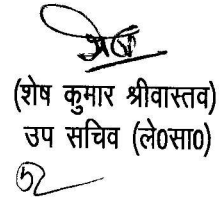 (शेष कुमार श्रीवास्तव)
उप सचिव (ले0सा0)